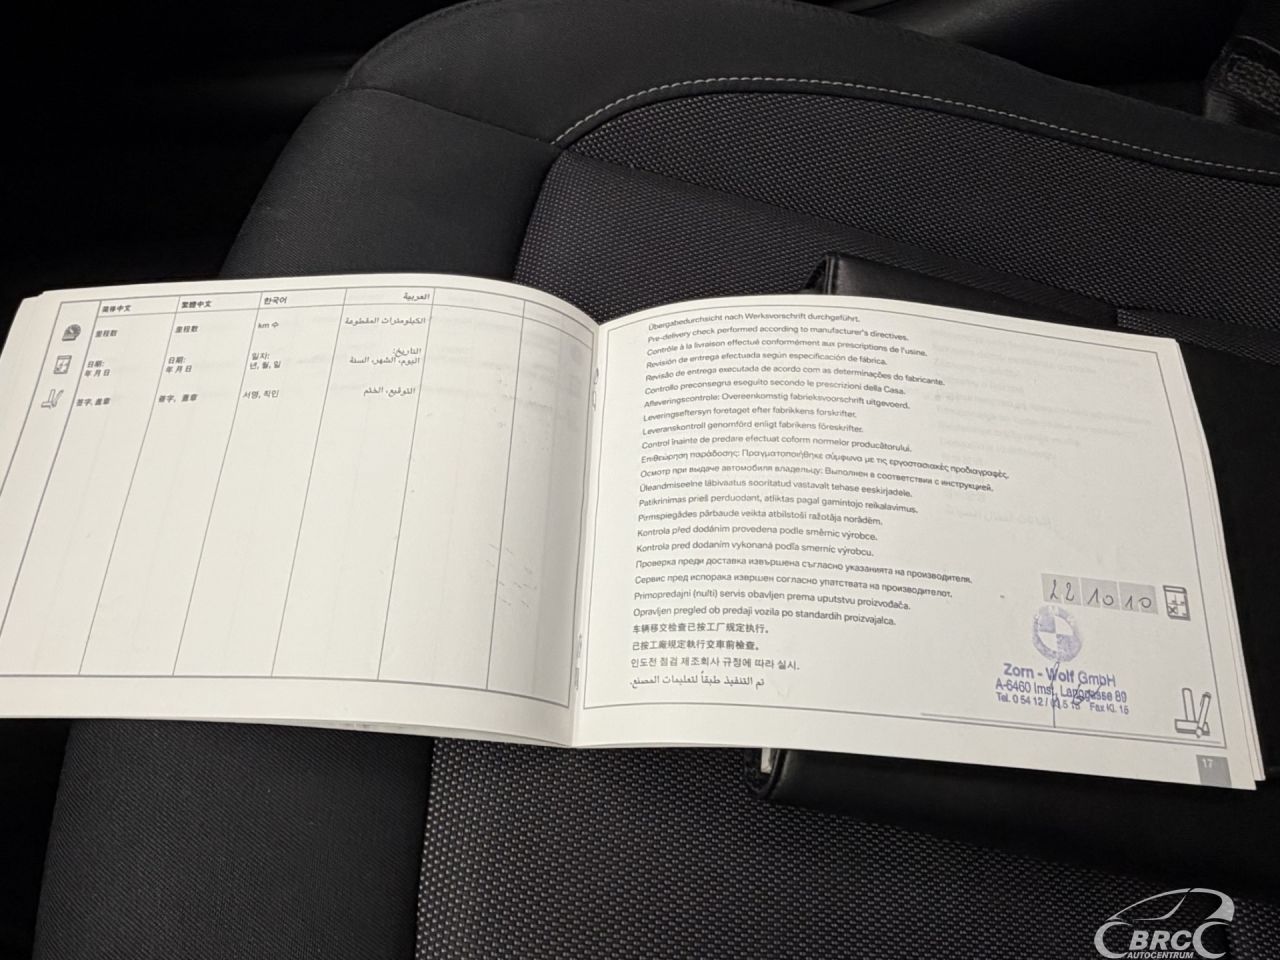 简体中文
繁體中文
한국어
العربية
里程数
里程數
km 수
الكيلومترات المقطوعة
日期:
年 月 日
日期:
年 月 日
일자:
년, 월, 일
التاريخ:
اليوم، الشهر، السنة
签字, 盖章
簽字, 蓋章
서명, 직인
التوقيع، الختم
Übergabedurchsicht nach Werksvorschrift durchgeführt.
Pre-delivery check performed according to manufacturer's directives.
Contrôle à la livraison effectué conformément aux prescriptions de l'usine.
Revisión de entrega efectuada según especificación de fábrica.
Revisão de entrega executada de acordo com as determinações do fabricante.
Controllo preconsegna eseguito secondo le prescrizioni della Casa.
Afleveringscontrole: Overeenkomstig fabrieksvoorschrift uitgevoerd.
Leveringseftersyn foretaget efter fabrikkens forskrifter.
Leveranskontroll genomförd enligt fabrikens föreskrifter.
Control înainte de predare efectuat coform normelor producătorului.
Επιθεώρηση παράδοσης: Πραγματοποιήθηκε σύμφωνα με τις εργοστασιακές προδιαγραφές.
Осмотр при выдаче автомобиля владельцу: Выполнен в соответствии с инструкцией.
Üleandmiseelne läbivaatus sooritatud vastavalt tehase eeskirjadele.
Patikrinimas prieš perduodant, atliktas pagal gamintojo reikalavimus.
Pirmspiegādes pārbaude veikta atbilstoši ražotāja norādēm.
Kontrola před dodáním provedena podle směrnic výrobce.
Kontrola pred dodaním vykonaná podľa smerníc výrobcu.
Проверка преди доставка извършена съгласно указанията на производителя.
Сервис пред испорака извршен согласно упатствата на производителот.
Primopredajni (nulti) servis obavljen prema uputstvu proizvođača.
Opravljen pregled ob predaji vozila po standardih proizvajalca.
车辆移交检查已按工厂规定执行。
已按工廠規定執行交車前檢查。
인도전 점검 제조회사 규정에 따라 실시.
تم التنفيذ طبقاً لتعليمات المصنع.
22 10 10
Zorn - Wolf GmbH
A-6460 Imst, Langgasse 89
Tel. 0 54 12 / Fax Kl. 15
17
BRC
AUTOCENTRUM